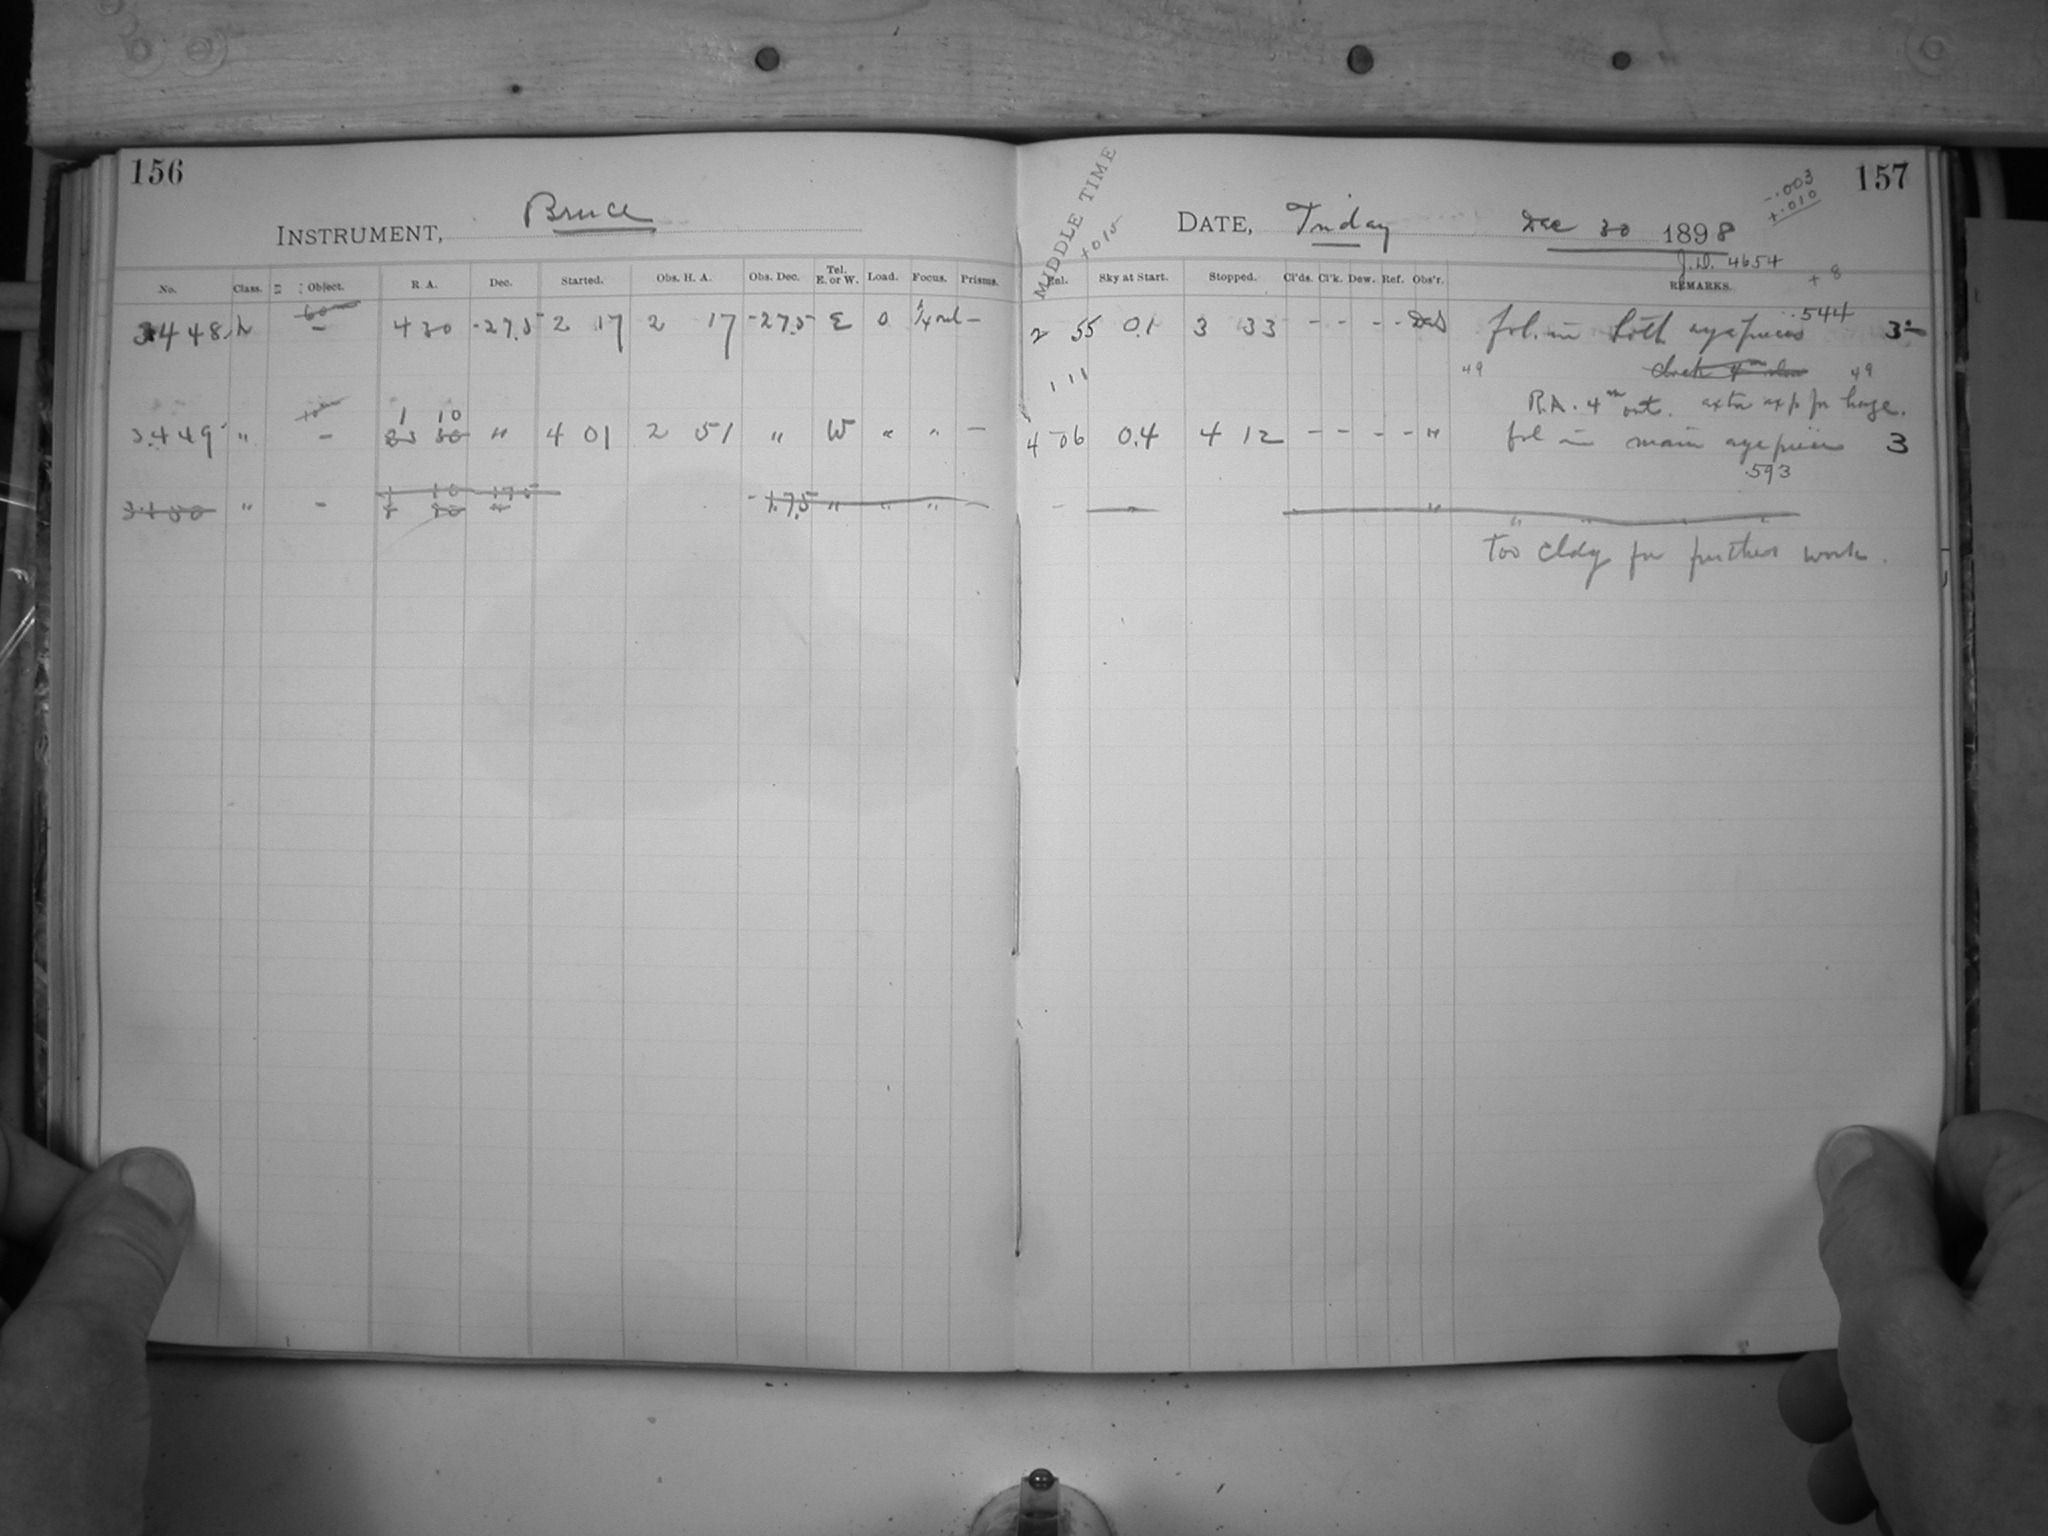 156
INSTRUMENT, Bruce
No. Class. Object. R. A. Dec. Started. Obs. H. A. Obs. Dec. Tel. E. or W. Load. Focus. Prisms.
60m
3448 L - 4 30 -27.5 2 17 2 17 -27.5 E 0 -
10m
1 10
3449 " - 23 30 " 4 01 2 51 " W " " -
1 10 17.5
3450 " - -17.5 " " " -
157
MIDDLE TIME
+.015
DATE, Friday Dec 30 1898
-.003
+.010
J.D. 4654
+8
Sky at Start. Stopped. Cl'ds. Cl'k. Dew. Ref. Obs'r. REMARKS.
.544
2 55 0.1 3 33 - - - - fol. in both eyepieces 3
49 clock 4m slow 49
R.A. 4m out. extra exp for
4 06 0.4 4 12 - - - - " fol in main eyepiece 3
.593
- - " " " " "
Too cldy for further work.